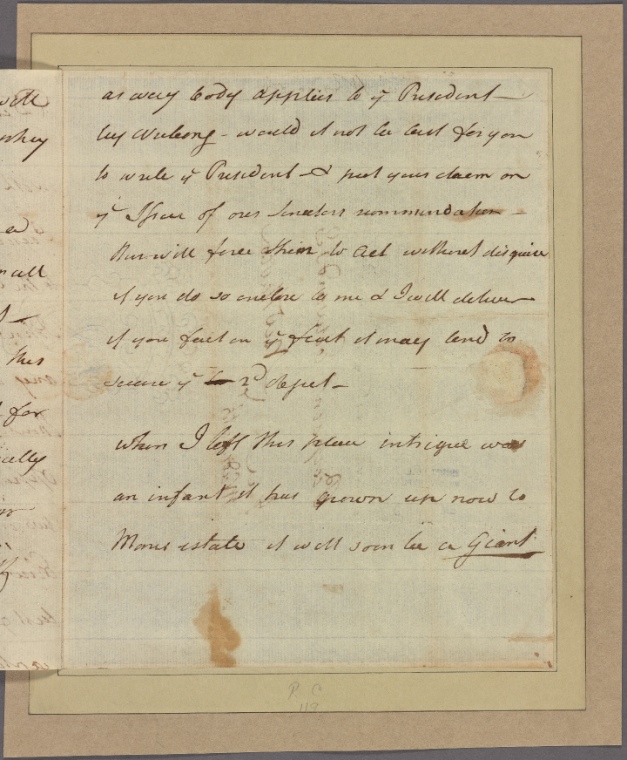 will
as every body applies to ye President —
by writing — would it not be best for you
to write ye President — & put your claim on
ye Issue of our Senators recommendation —
this will force them to act without disguise
if you do so enclose to me & I will deliver —
if you fail in ye first it may tend to
secure ye 2d object —
when I left this place intrigue was
an infant it has grown up now to
Mans estate it will soon be a Giant
all
this
for
ally
R C
118